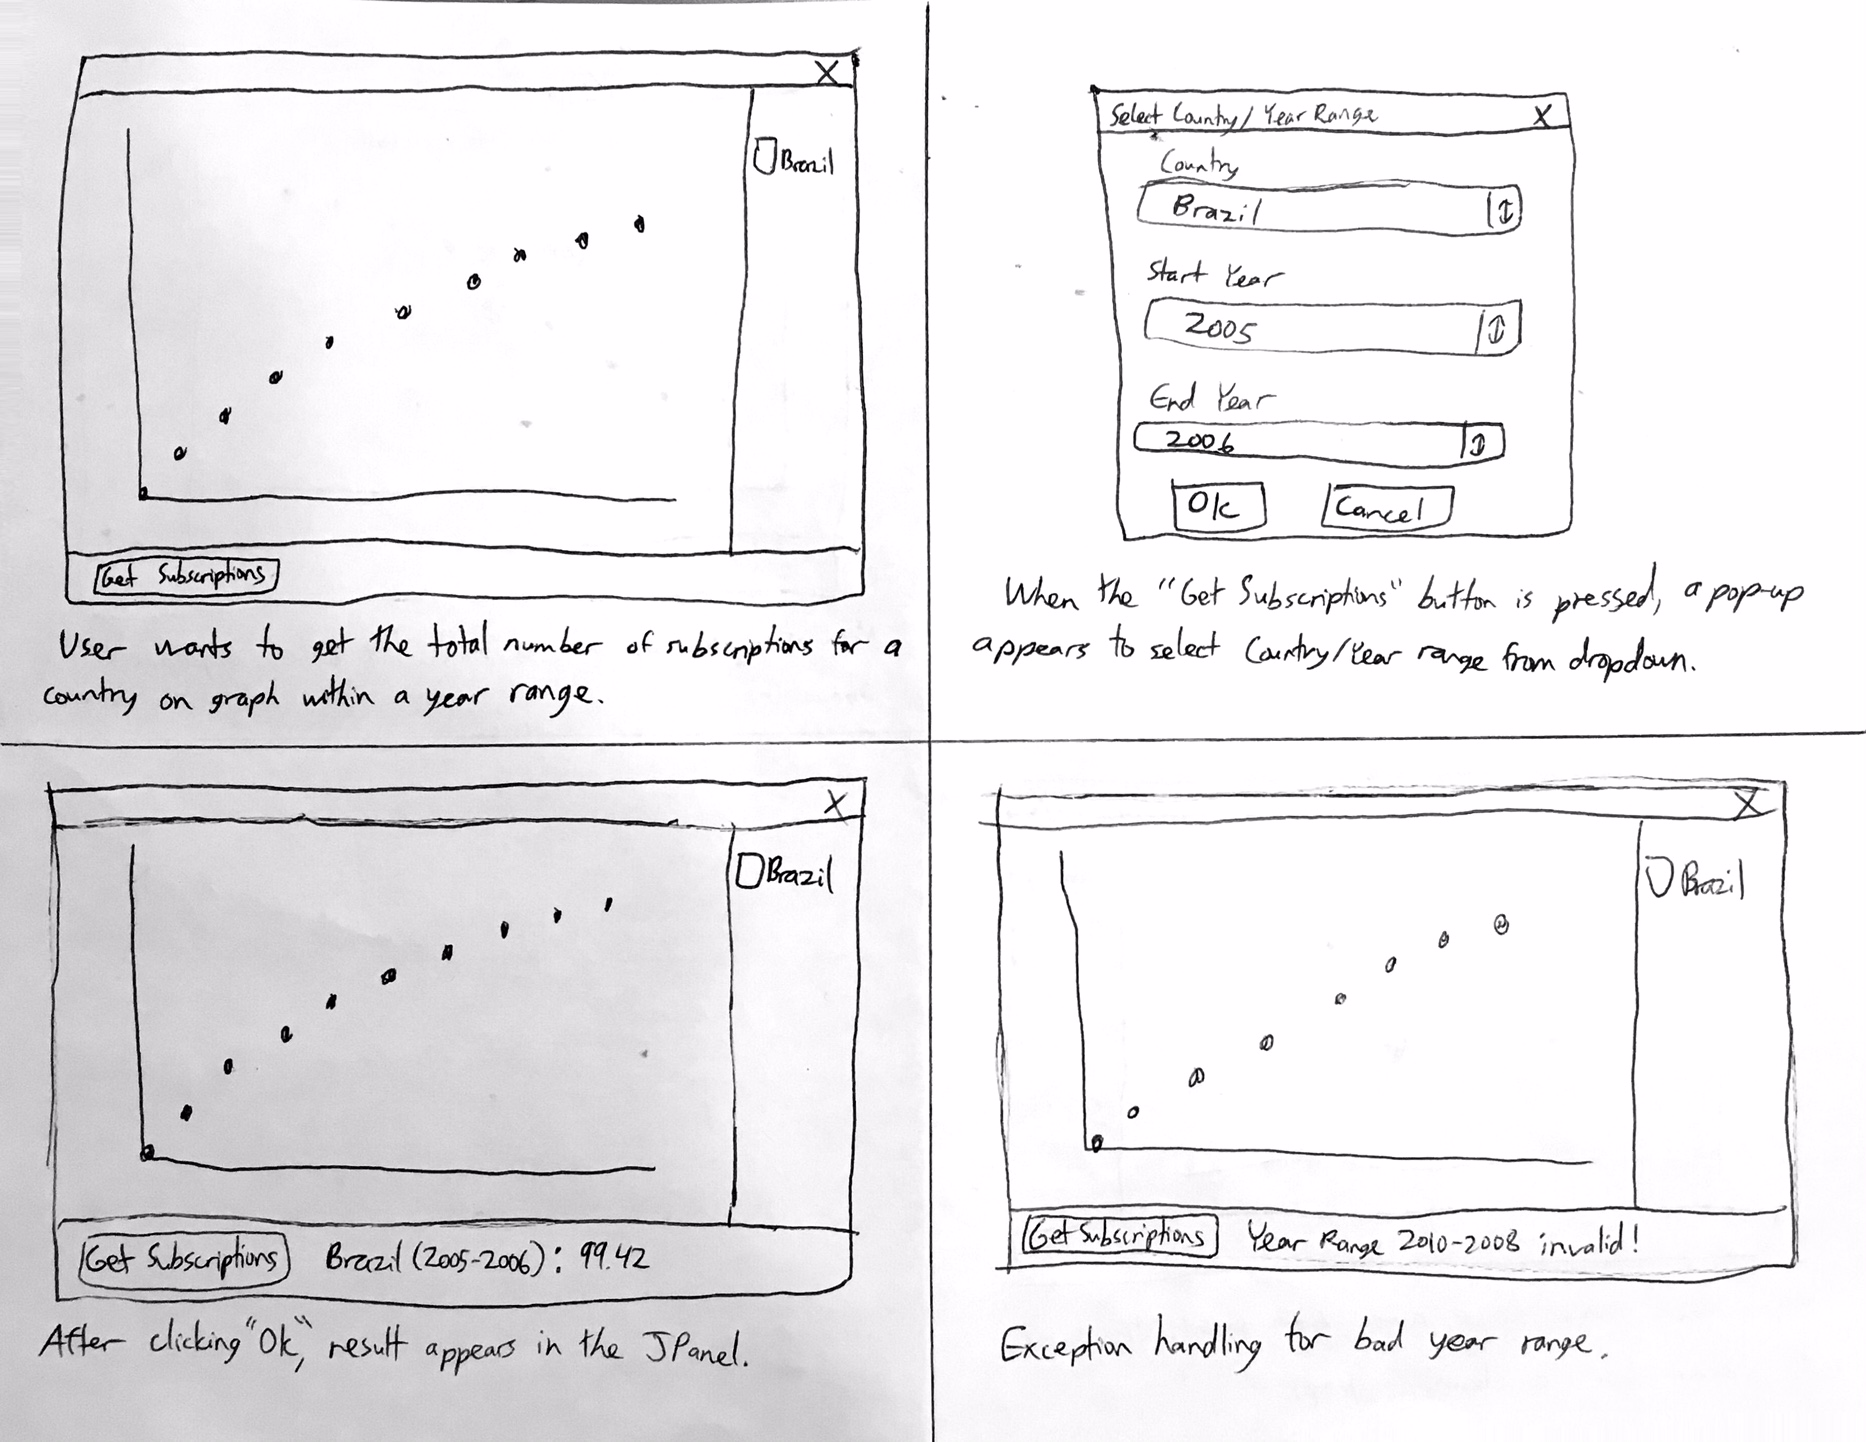 X
Brazil
Get Subscriptions
User wants to get the total number of subscriptions for a
country on graph within a year range.
Select Country/Year Range X
Country
Brazil
Start Year
2005
End Year
2006
Ok Cancel
When the "Get Subscriptions" button is pressed, a pop-up
appears to select Country/Year range from dropdown.
X
Brazil
Get Subscriptions Brazil (2005-2006): 99.42
After clicking "Ok", result appears in the JPanel.
X
Brazil
Get Subscriptions Year Range 2010-2008 invalid!
Exception handling for bad year range.